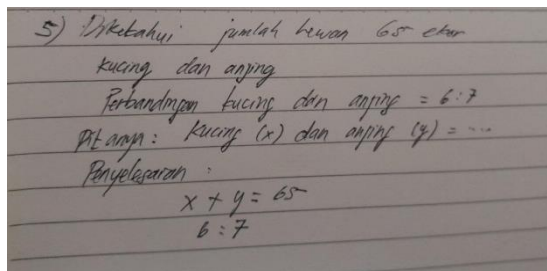 5) Diketahui jumlah hewan 65 ekor
kucing dan anjing
Perbandingan kucing dan anjing = 6:7
Ditanya: Kucing (x) dan anjing (y) = ...
Penyelesaian :
x + y = 65
6 : 7